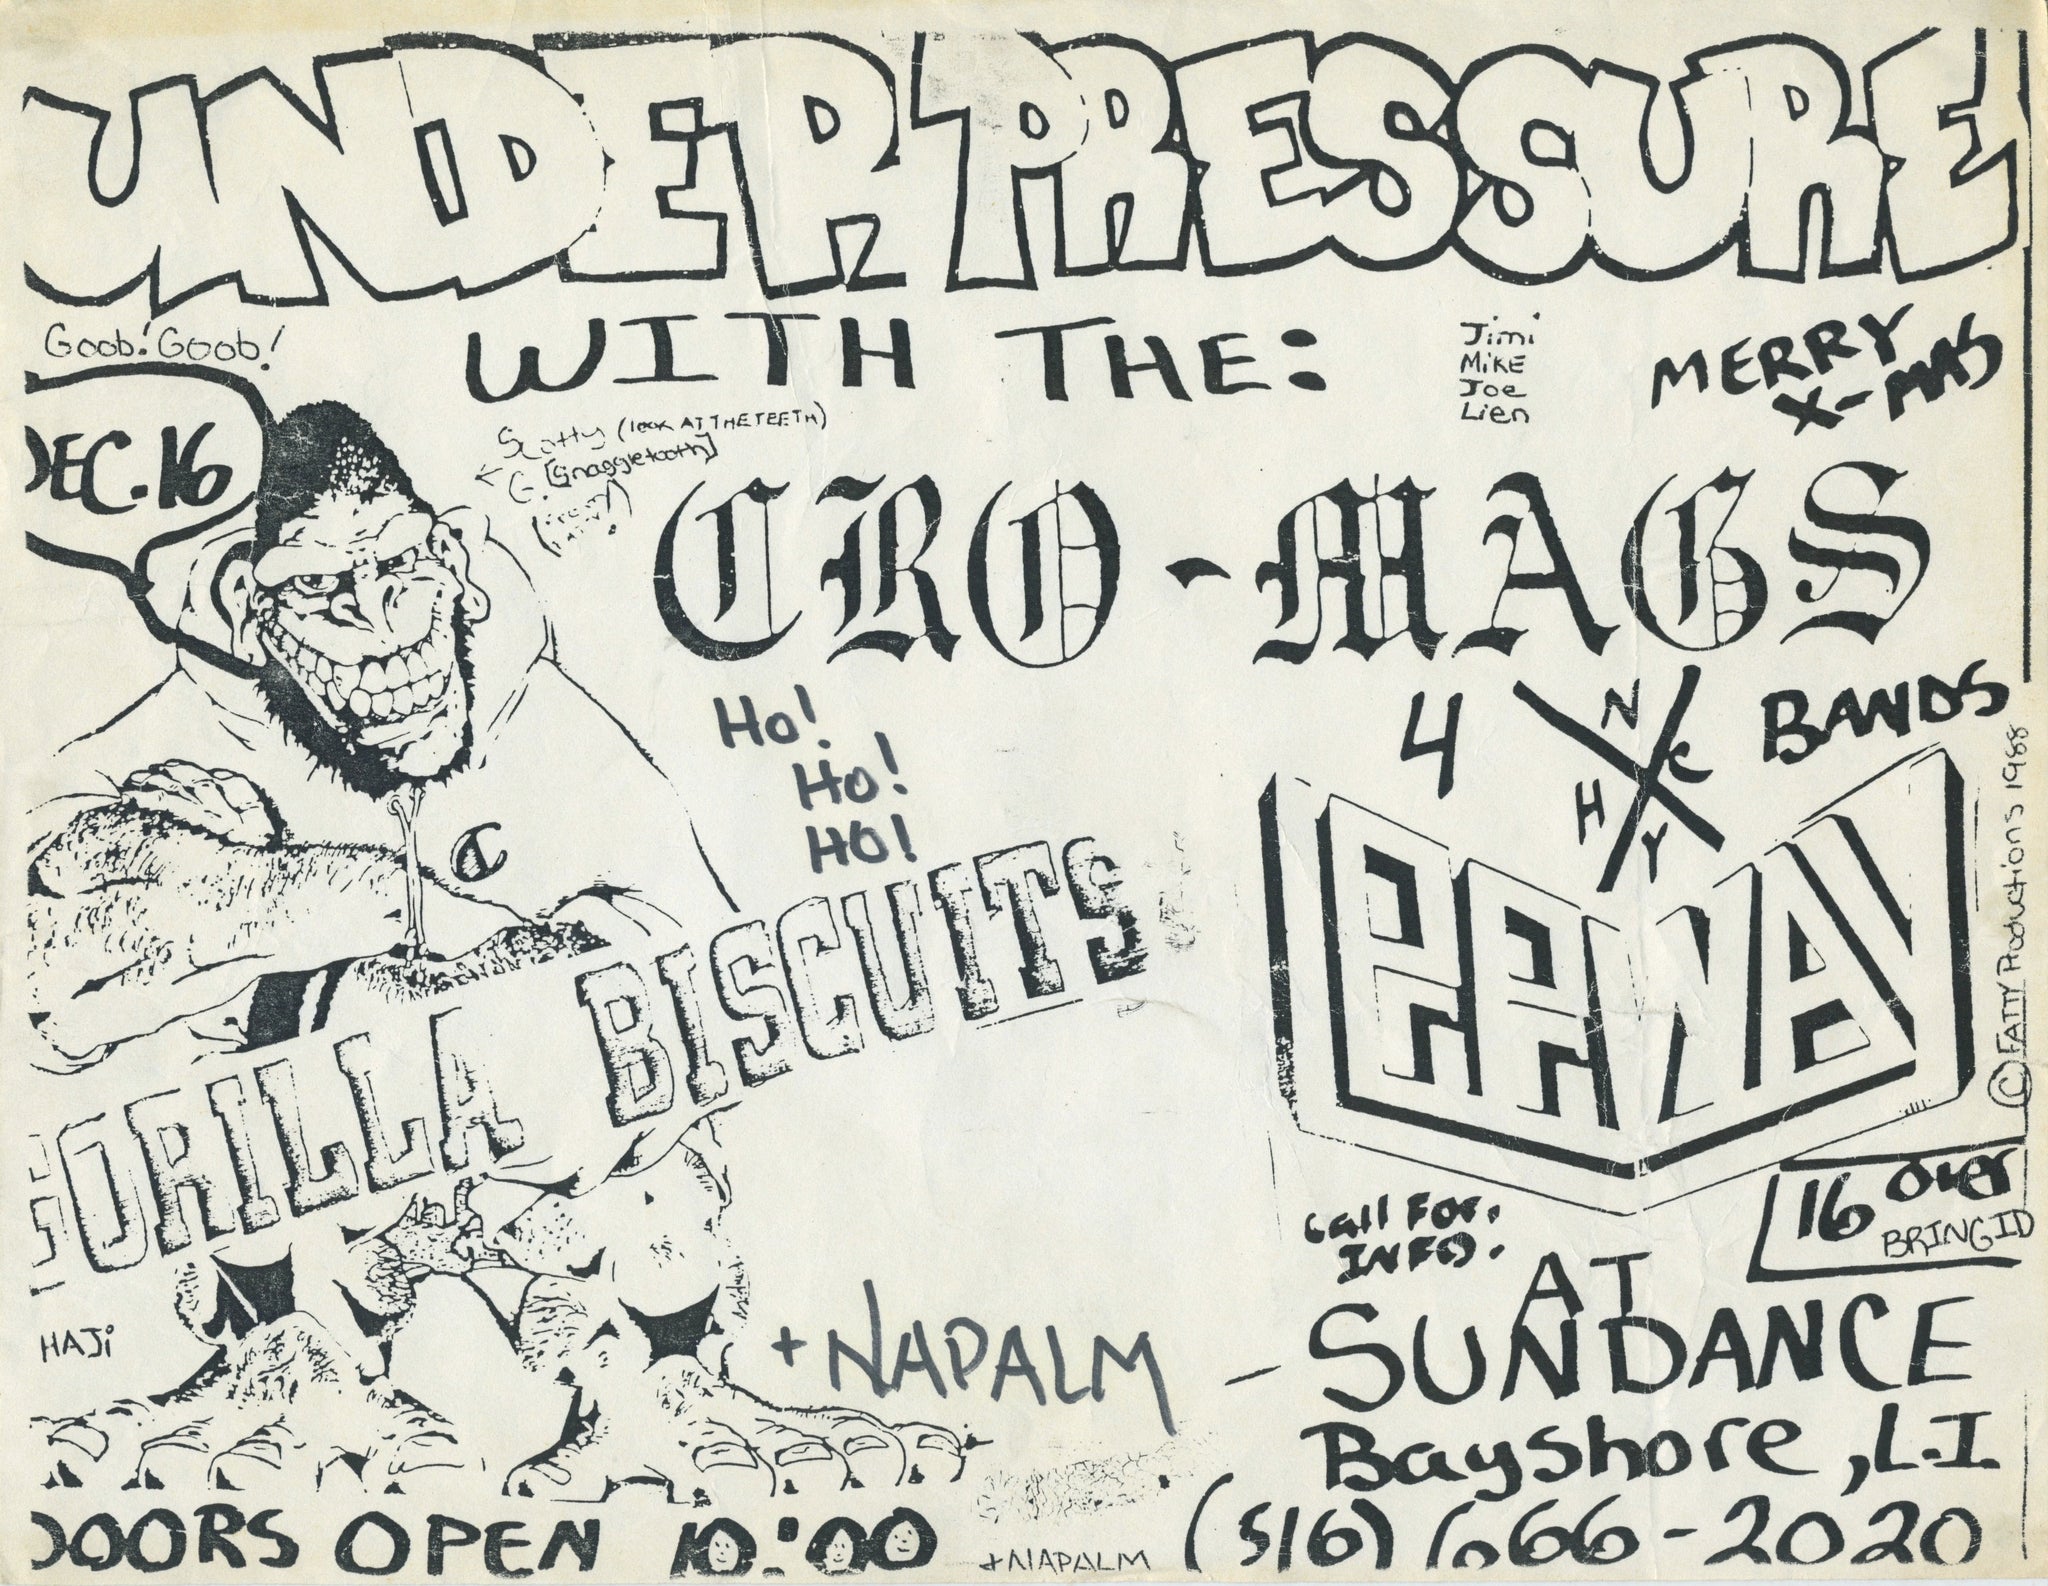 UNDER PRESSURE
Goob! Goob!
WITH THE:
Jimi
Mike
Joe
Lien
MERRY
X-MAS
DEC. 16
Scotty (look AT THE TEETH)
← G. [Snaggletooth]
CRO-MAGS
Ho!
Ho!
HO!
4 NYHC BANDS
C
GORILLA BISCUITS
LEEWAY
© FATTY Productions 1988
16 over
BRING ID
Call For.
INFO.
HAJi
+ NAPALM
- AT
SUNDANCE
Bayshore, L.I.
DOORS OPEN 10:00
+ NAPALM
(516) 666-2020